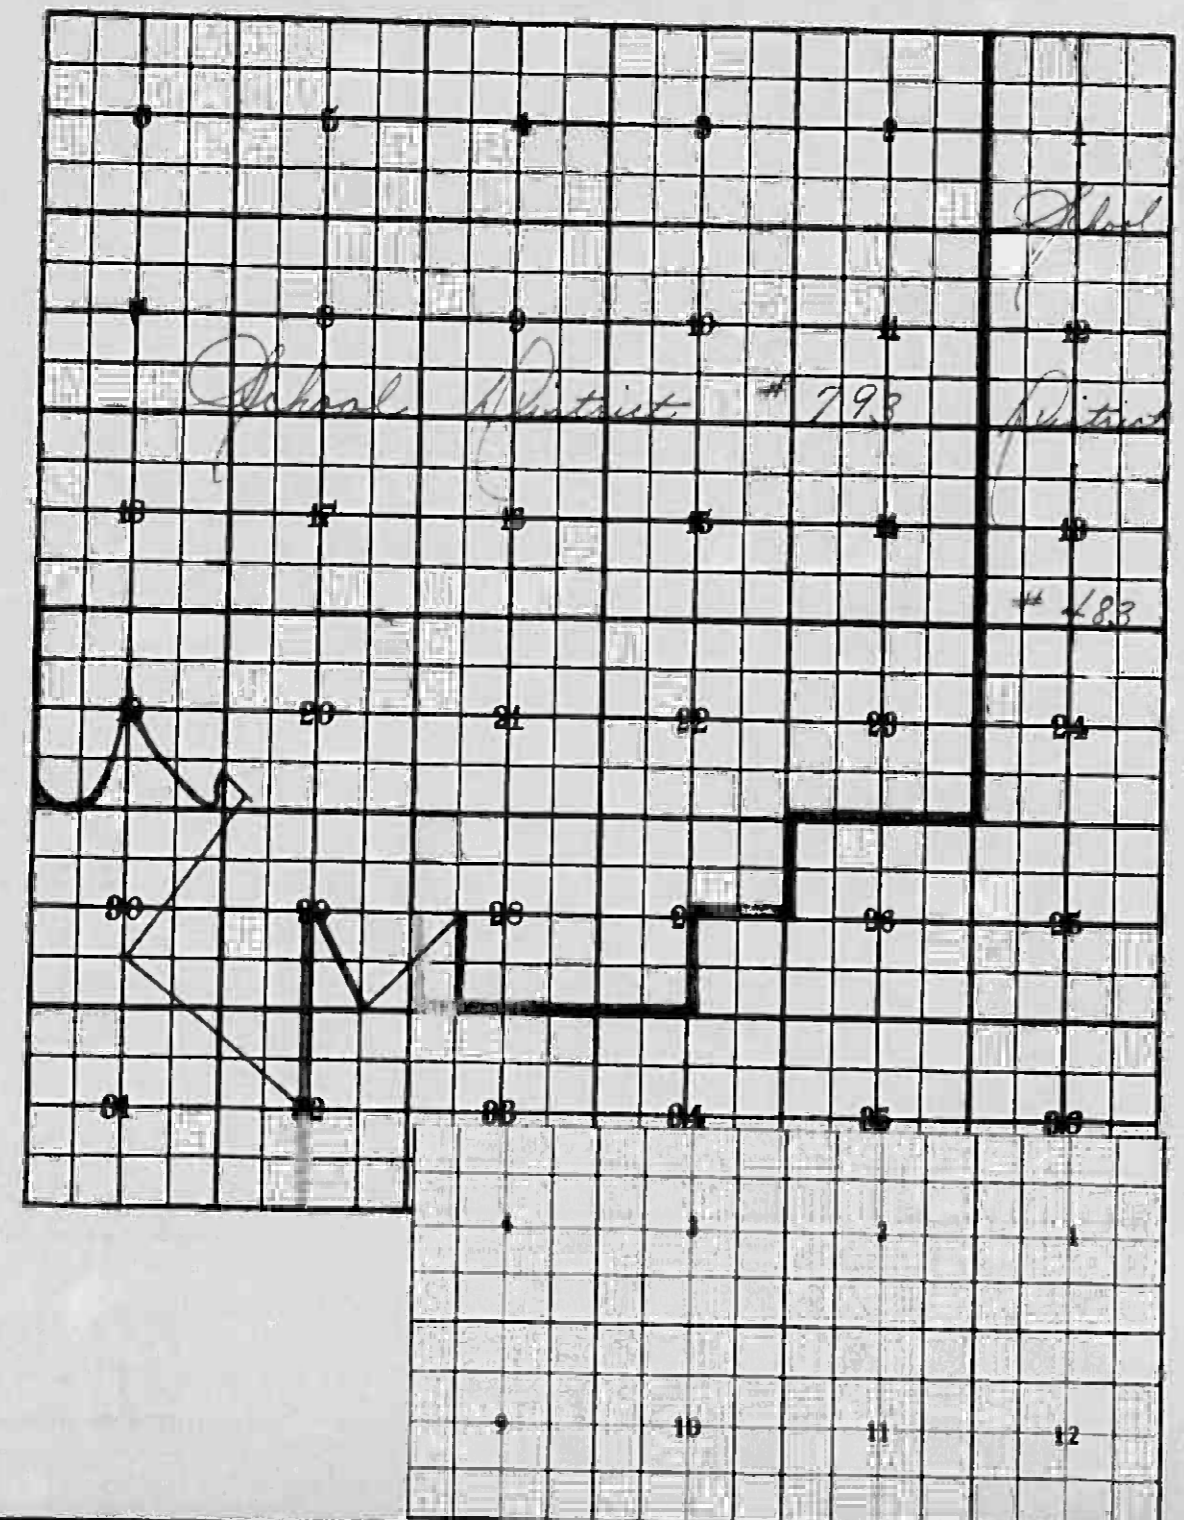 6 5 4 3 2 1
School
7 8 9 10 11 12
School District # 793 District
18 17 16 15 14 13
# 483
19 20 21 22 23 24
30 29 28 27 26 25
31 32 33 34 35 36
4 3 2 1
9 10 11 12